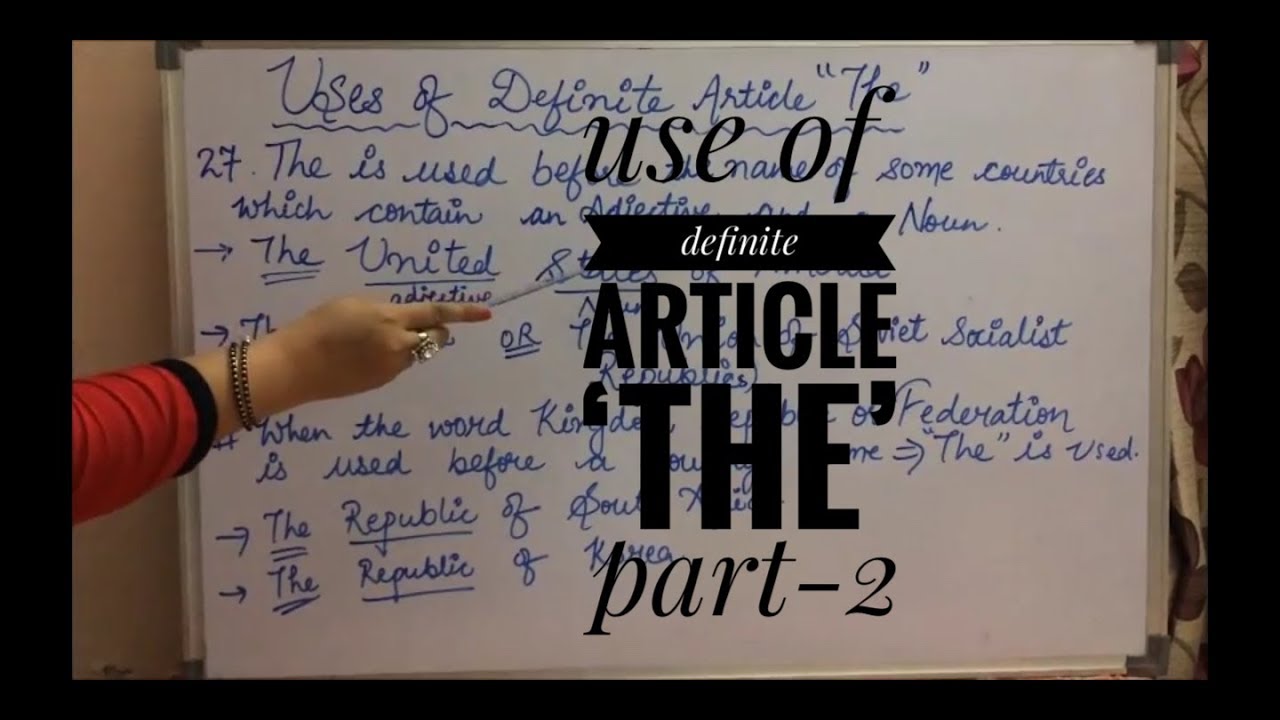 Uses of Definite Article "The"
27. The is used before the name of some countries
which contain an Adjective and a Noun.
→ The United States of
adjective Noun
→ The OR The Union of Soviet Socialist
Republics)
# When the word Kingdom Republic or Federation
is used before a country name ⇒ "The" is used.
→ The Republic of South Africa
→ The Republic of Korea
use of
definite
ARTICLE
'THE'
part-2